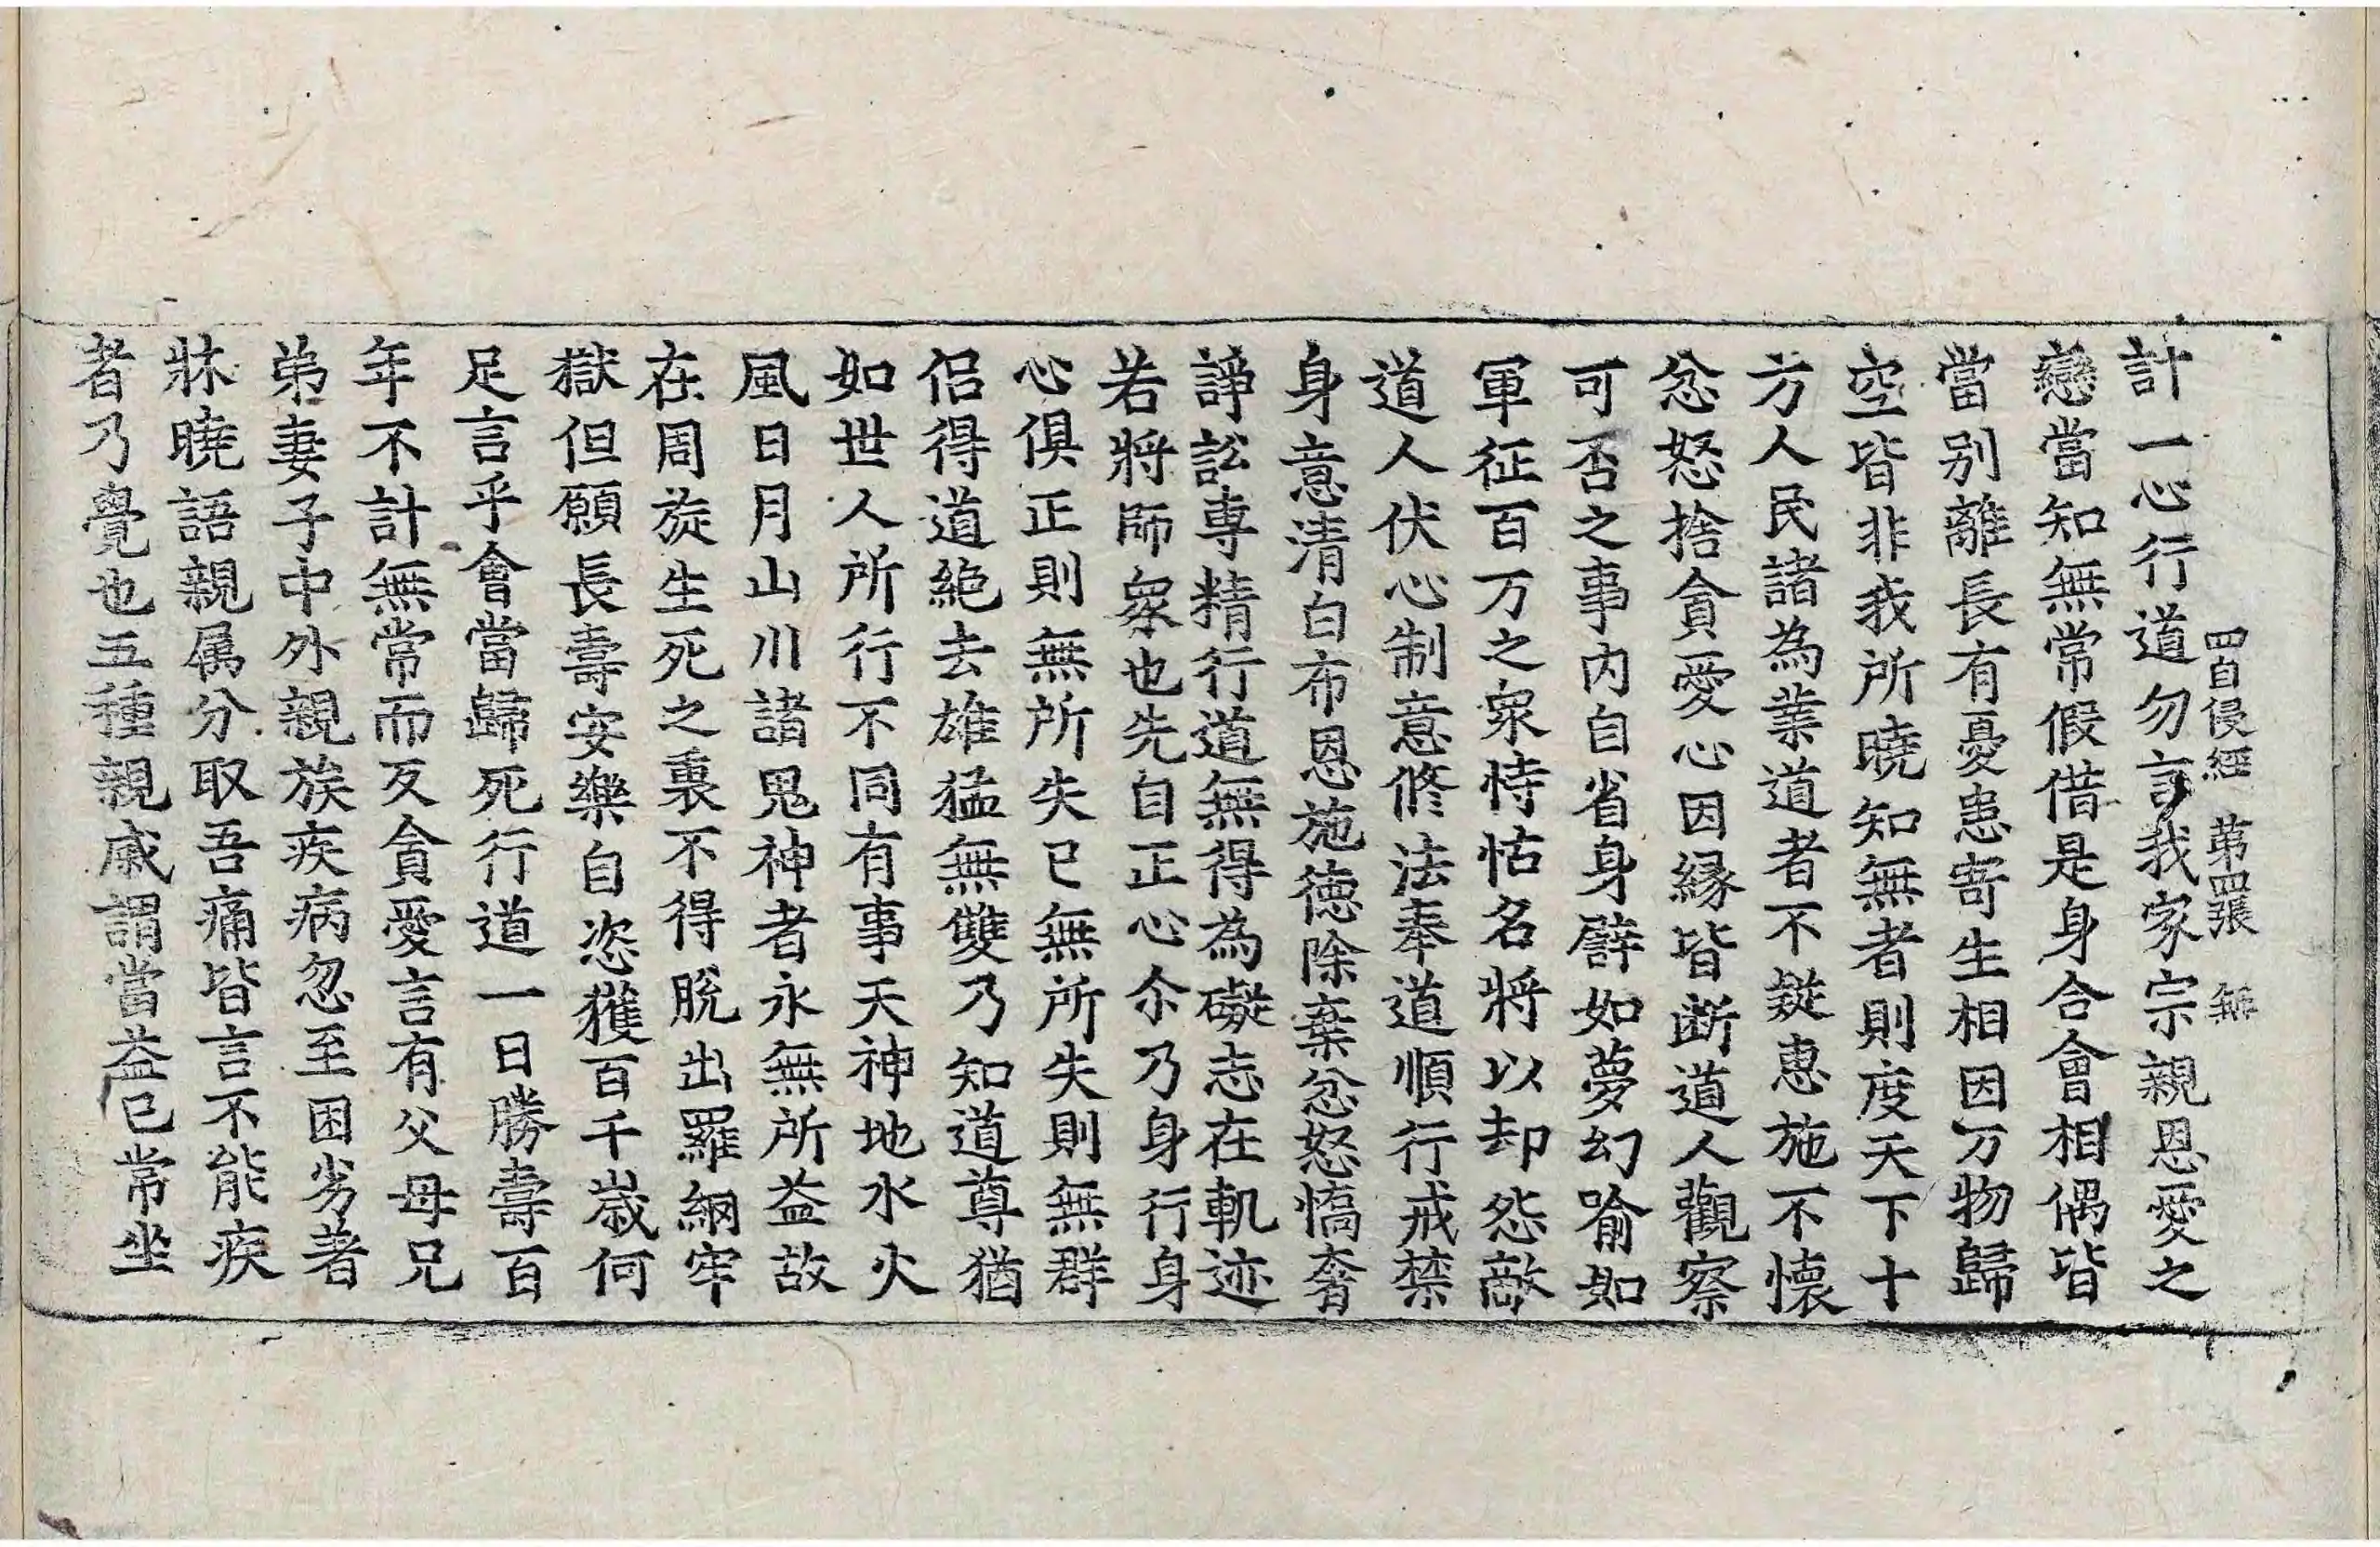 四自侵經 第四張 無
計一心行道勿言我家宗親恩愛之
戀當知無常假借是身合會相偶皆
當別離長有憂患寄生相因万物歸
空皆非我所曉知無者則度天下十
方人民諸為業道者不礙惠施不懷
忿怒捨貪愛心因緣皆断道人觀察
可否之事內自省身譬如夢幻喻如
軍征百万之衆恃怙名將以却怨敵
道人伏心制意修法奉道順行戒禁
身意清白布恩施德除棄忿怒憍奢
諍訟専精行道無得為礙志在軌迹
若將師衆也先自正心尒乃身行身
心俱正則無所失已無所失則無群
侣得道絕去雄猛無雙乃知道尊猶
如世人所行不同有事天神地水火
風日月山川諸鬼神者永無所益故
在周旋生死之裏不得脫出羅網牢
獄但願長壽安樂自恣獲百千歲何
足言乎會當歸死行道一日勝壽百
年不計無常而反貪愛言有父母兄
弟妻子中外親族疾病忽至困劣著
牀曉語親属分取吾痛皆言不能疾
者乃覺也五種親戚謂當益已常坐